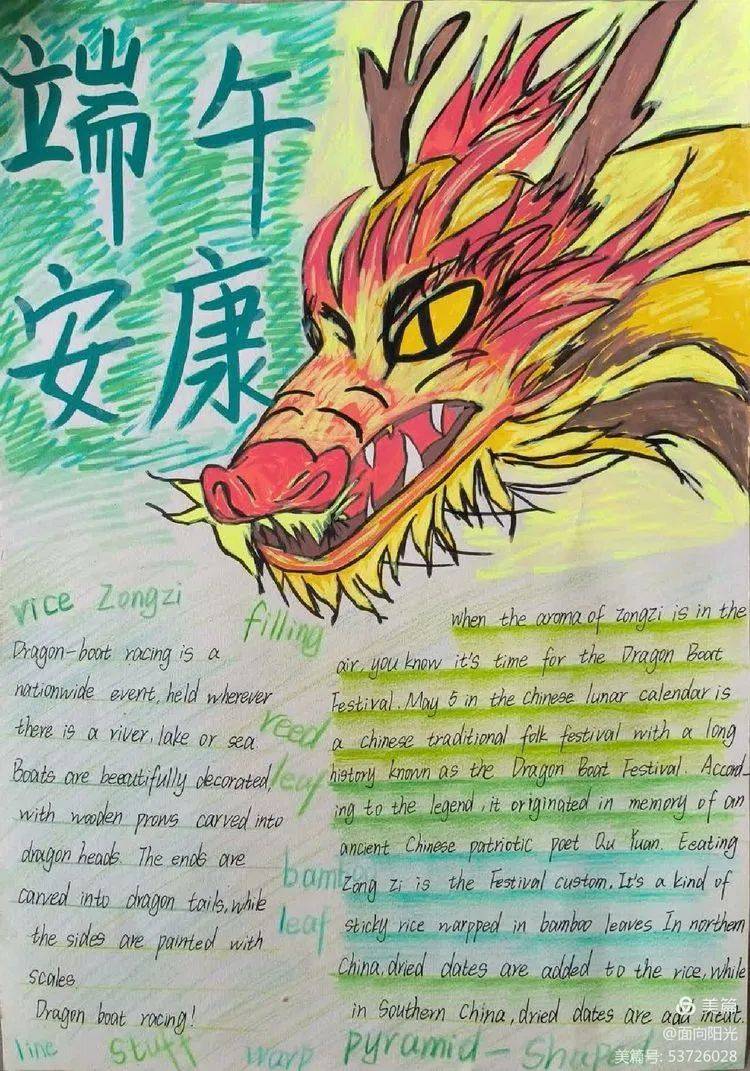 端午
安康
rice Zongzi
filling
reed
leaf
bamboo
leaf
Dragon-boat racing is a
nationwide event, held wherever
there is a river, lake or sea
Boats are beeautifully decorated,
with wooden prows carved into
dragon heads. The ends are
carved into dragon tails, while
the sides are painted with
scales
Dragon boat racing!
when the aroma of zongzi is in the
air, you know it's time for the Dragon Boat
Festival. May 5 in the chinese lunar calendar is
a chinese traditional folk festival with a long
history known as the Dragon Boat Festival. Accord-
ing to the legend, it originated in memory of an
ancient Chinese patriotic poet Qu Yuan. Eeating
Zong zi is the Festival custom. It's a kind of
sticky rice warpped in bamboo leaves. In northern
China, dried dates are added to the rice, while
in Southern China, dried dates are add
line stuff warp pyramid-shaped
美篇
@面向阳光
美篇号: 53726028